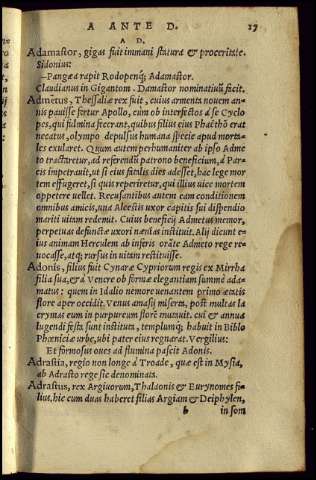 A ANTE D. 17
A D.
Adamastor, gigas fuit immani statura & proceritate.
Sidonius:
—Pangæa rapit Rodopenq; Adamastor.
Claudianus in Gigantom. Damastor nominatiuũ fecit.
Admetus, Thessaliæ rex fuit, cuius armenta nouem an-
nis pauisse fertur Apollo, cum ob interfectos à se Cyclo
pes, qui fulmina fecerant, quibus filius eius Phaëthõ erat
necatus, olympo depulsus humana specie apud morta-
les exularet. Quum autem perhumaniter ab ipso Adme
to tractaretur, ad referendũ patrono beneficium, à Par
cis impetrauit, ut si eius fatalis dies adesset, hac lege mor
tem effugeret, si quis reperiretur, qui illius uice mortem
oppetere uellet. Recusantibus autem eam conditionem
omnibus amicis, una Alcestis uxor capitis sui dispendio
mariti uitam redemit. Cuius beneficij Admetus memor,
perpetuas defunctæ uxori nænias instituit. Alij dicunt e-
ius animam Herculem ab inferis orãte Admeto rege re-
uocasse, atq; rursus in uitam restituisse.
Adonis, filius fuit Cynaræ Cypriorum regis ex Mirrha
filia sua, & à Venere ob formæ elegantiam summe ada-
matus: quem in Idalio nemore uenantem primo ætatis
flore aper occidit. Venus amasij miserta, post multas la
crymas eum in purpureum florẽ mutauit. cui & annua
lugendi festa sunt instituta, templumq; habuit in Biblo
Phœniciæ urbe, ubi pater eius regnarat. Vergilius:
Et formosus oues ad flumina pascit Adonis.
Adrastia, regio non longe à Troade, quæ est in Mysia,
ab Adrasto rege sic denominata.
Adrastus, rex Argiuorum, Thalaonis & Eurynomes fi-
lius, hic cum duas haberet filias Argiam & Deiphylen,
b in som